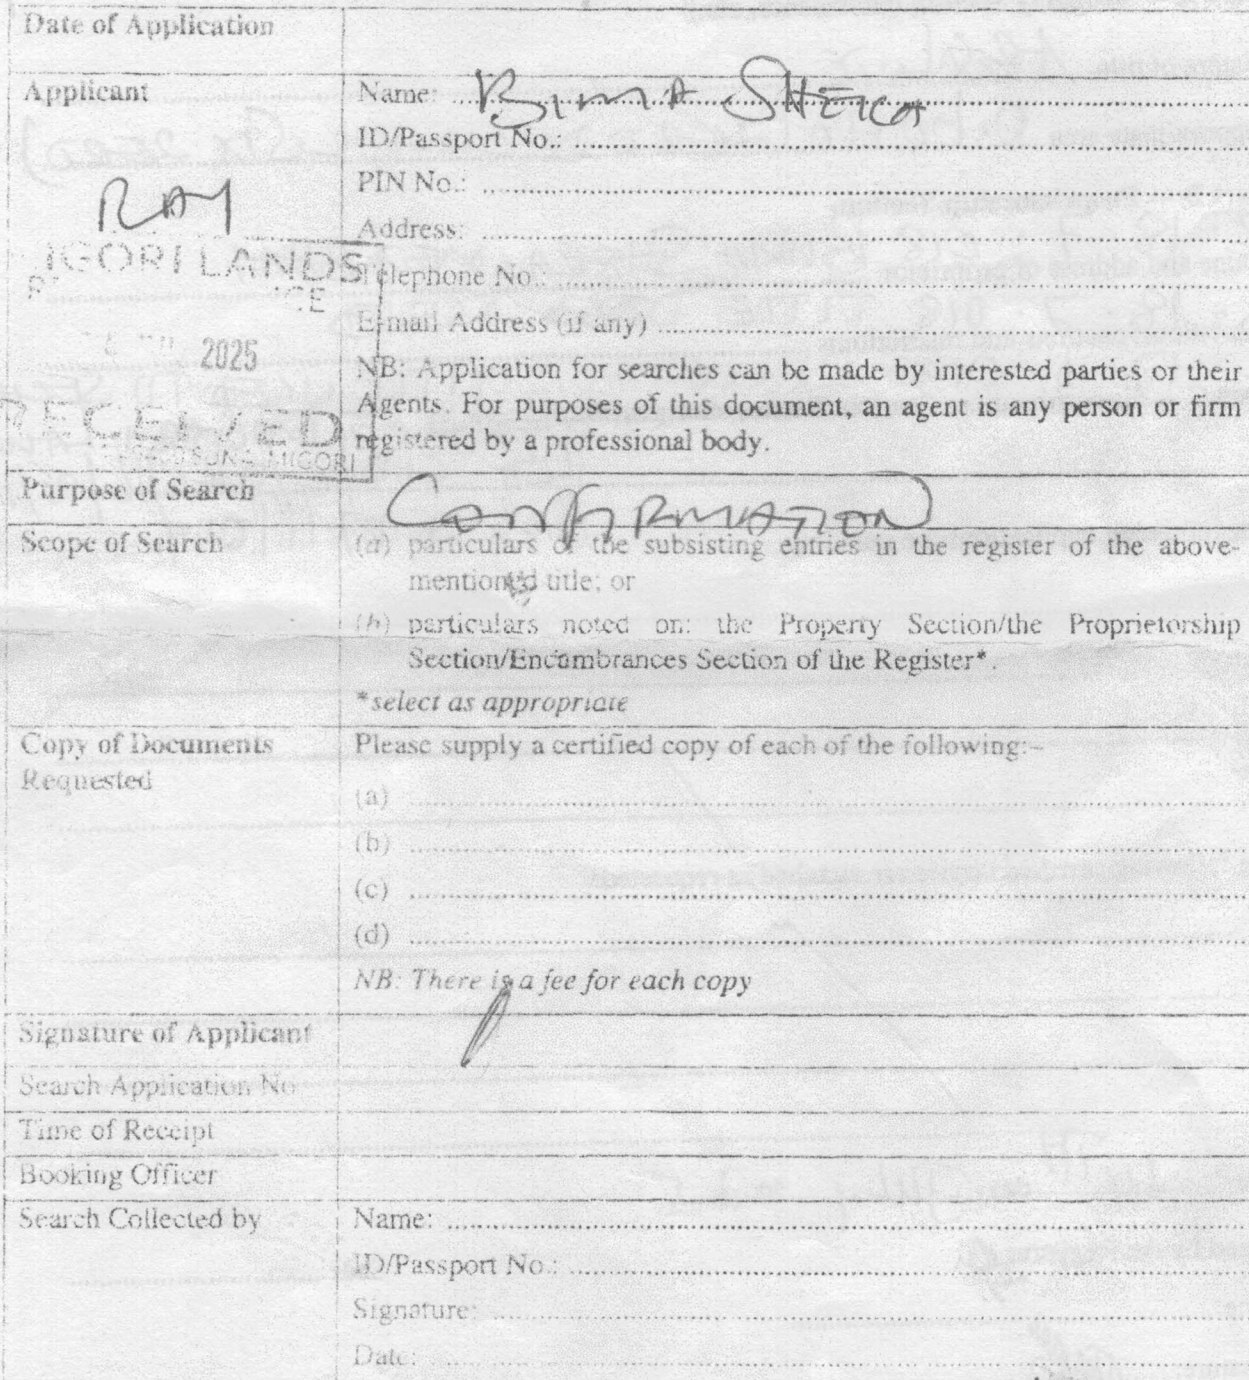 Date of Application
Applicant
Name: BIMA SHEIKH
ID/Passport No.:
PIN No.:
RAY
Address:
IGORI LANDS
Telephone No.:
E-mail Address (if any)
2025
NB: Application for searches can be made by interested parties or their
Agents. For purposes of this document, an agent is any person or firm
registered by a professional body.
RECEIVED
SUNA MIGORI
Purpose of Search
CONFIRMATION
Scope of Search
(a) particulars of the subsisting entries in the register of the above-
mentioned title; or
(b) particulars noted on: the Property Section/the Proprietorship
Section/Encumbrances Section of the Register*.
*select as appropriate
Copy of Documents
Requested
Please supply a certified copy of each of the following:–
(a)
(b)
(c)
(d)
NB: There is a fee for each copy
Signature of Applicant
Search Application No
Time of Receipt
Booking Officer
Search Collected by
Name:
ID/Passport No.:
Signature:
Date: